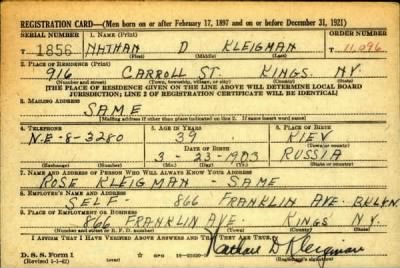 REGISTRATION CARD—(Men born on or after February 17, 1897 and on or before December 31, 1921)
SERIAL NUMBER 1. NAME (Print) ORDER NUMBER
T 1856 NATHAN D KLEIGMAN T 11,096
(First) (Middle) (Last)
2. PLACE OF RESIDENCE (Print)
916 CARROLL ST. KINGS. NY.
(Number and street) (Town, township, village, or city) (County) (State)
[THE PLACE OF RESIDENCE GIVEN ON THE LINE ABOVE WILL DETERMINE LOCAL BOARD
JURISDICTION; LINE 2 OF REGISTRATION CERTIFICATE WILL BE IDENTICAL]
3. MAILING ADDRESS
SAME
(Mailing address if other than place indicated on line 2. If same insert word same)
4. TELEPHONE 5. AGE IN YEARS 6. PLACE OF BIRTH
NE-8-3280 39 KIEV
DATE OF BIRTH (Town or county)
3-23-1903 RUSSIA
(Mo.) (Day) (Yr.) (State or country)
7. NAME AND ADDRESS OF PERSON WHO WILL ALWAYS KNOW YOUR ADDRESS
ROSE KLEIGMAN - SAME
8. EMPLOYER'S NAME AND ADDRESS
SELF - 866 FRANKLIN AVE. BKLYN.
9. PLACE OF EMPLOYMENT OR BUSINESS
866 FRANKLIN AVE. KINGS NY.
(Number and street or R. F. D. number) (Town) (County) (State)
I AFFIRM THAT I HAVE VERIFIED ABOVE ANSWERS AND THAT THEY ARE TRUE.
D. S. S. Form 1
(Revised 1-1-42) GPO
Nathan D Kleigman
(Registrant's signature)